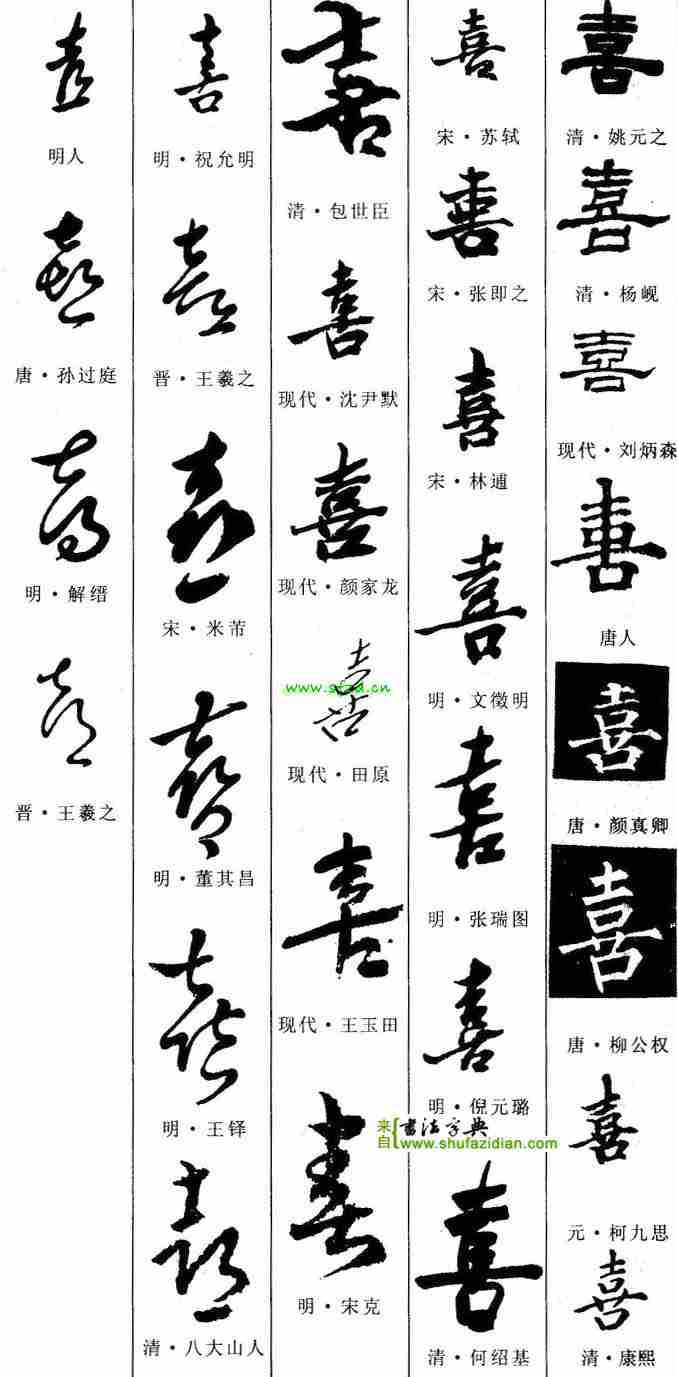 喜
清·姚元之
喜
清·杨岘
喜
现代·刘炳森
喜
唐人
喜
唐·颜真卿
喜
唐·柳公权
喜
元·柯九思
喜
清·康熙
喜
宋·苏轼
喜
宋·张即之
喜
宋·林逋
喜
明·文徵明
喜
明·张瑞图
喜
明·倪元璐
喜
清·何绍基
喜
清·包世臣
喜
现代·沈尹默
喜
现代·颜家龙
喜
现代·田原
喜
现代·王玉田
喜
明·宋克
喜
明·祝允明
喜
晋·王羲之
喜
宋·米芾
喜
明·董其昌
喜
明·王铎
喜
清·八大山人
喜
明人
喜
唐·孙过庭
喜
明·解缙
喜
晋·王羲之
www.sfzd.cn
来自 书法字典
www.shufazidian.com